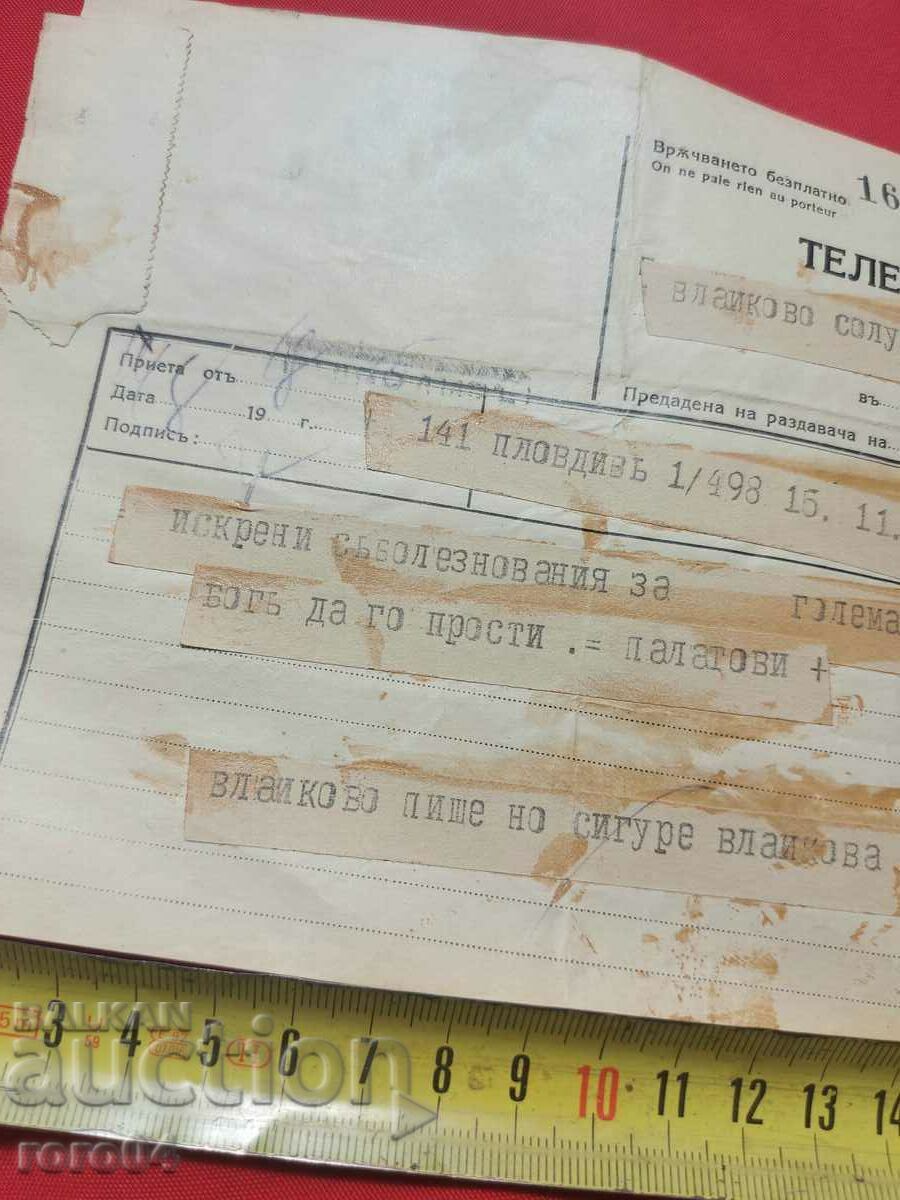 Врѫчването безплатно
On ne paie rien au porteur
16
ТЕЛЕ
ВЛАИКОВО СОЛУ
Приета отъ
Дата 19 г.
Подпись:
въ
Предадена на раздавача на
141 ПЛОВДИВЬ 1/498 15. 11.
ИСКРЕНИ СЬБОЛЕЗНОВАНИЯ ЗА ГОЛЕМА
БОГЬ ДА ГО ПРОСТИ .= ПАЛАТОВИ +
ВЛАИКОВО ПИШЕ НО СИГУРЕ ВЛАИКОВА
3 4 5 6 7 8 9 10 11 12 13 14
59
BALKAN
auction
roro04